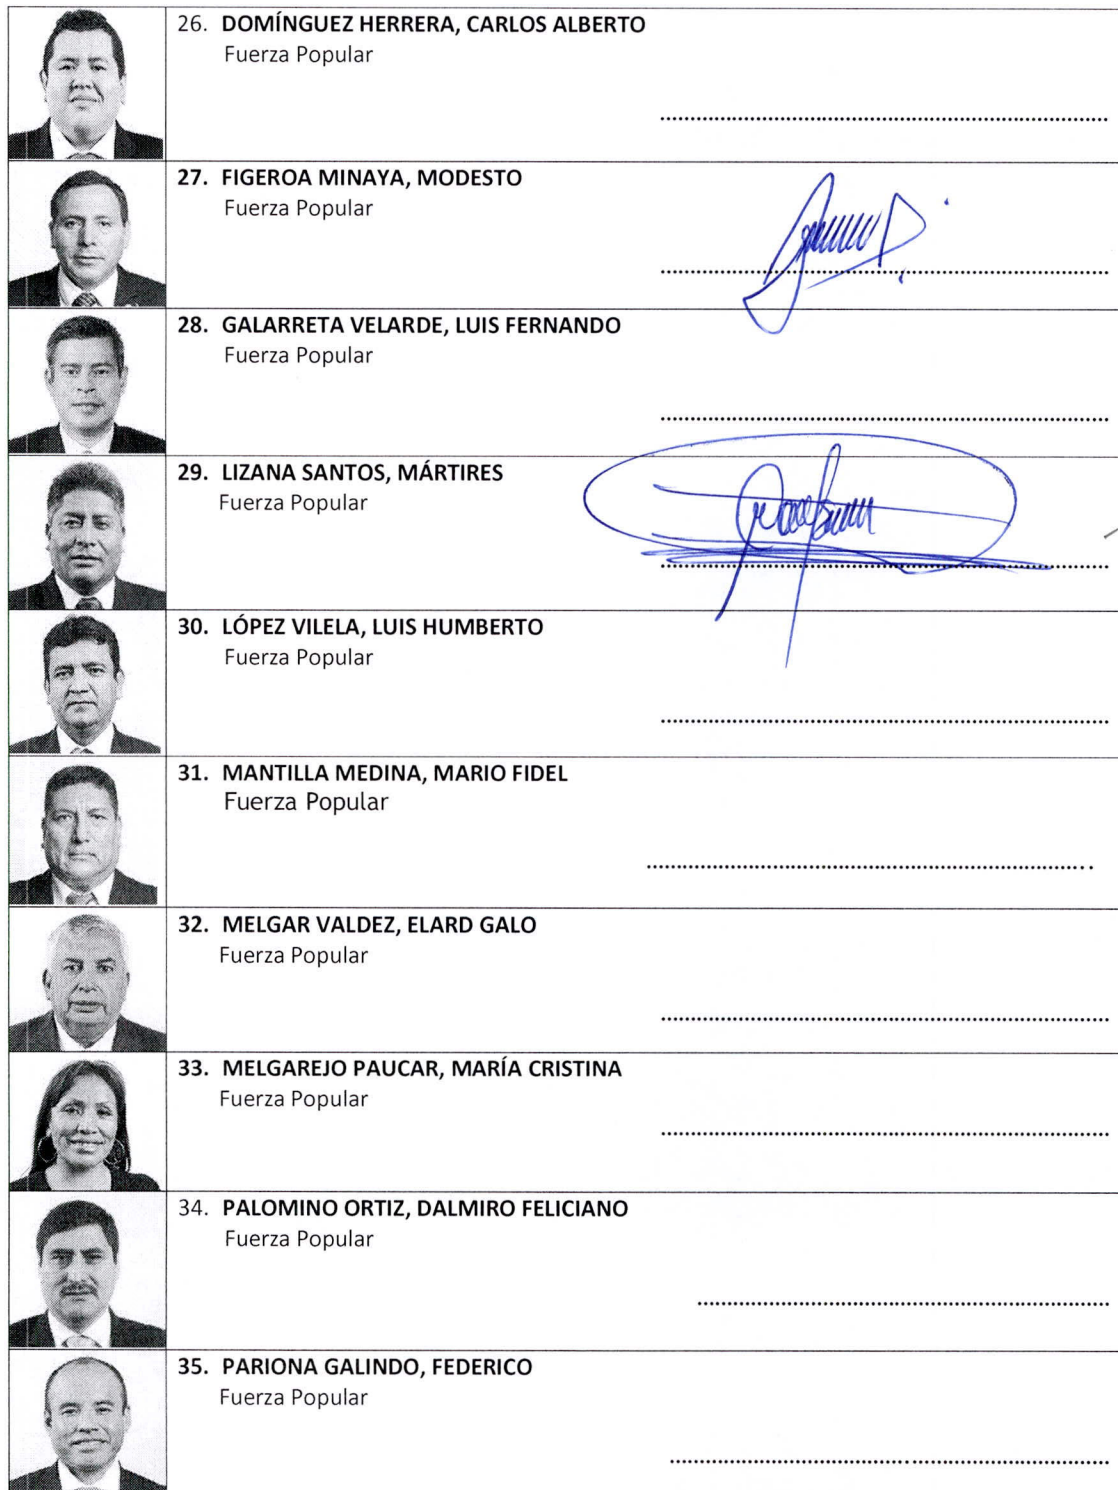 26. DOMÍNGUEZ HERRERA, CARLOS ALBERTO
Fuerza Popular
27. FIGEROA MINAYA, MODESTO
Fuerza Popular
28. GALARRETA VELARDE, LUIS FERNANDO
Fuerza Popular
29. LIZANA SANTOS, MÁRTIRES
Fuerza Popular
30. LÓPEZ VILELA, LUIS HUMBERTO
Fuerza Popular
31. MANTILLA MEDINA, MARIO FIDEL
Fuerza Popular
32. MELGAR VALDEZ, ELARD GALO
Fuerza Popular
33. MELGAREJO PAUCAR, MARÍA CRISTINA
Fuerza Popular
34. PALOMINO ORTIZ, DALMIRO FELICIANO
Fuerza Popular
35. PARIONA GALINDO, FEDERICO
Fuerza Popular